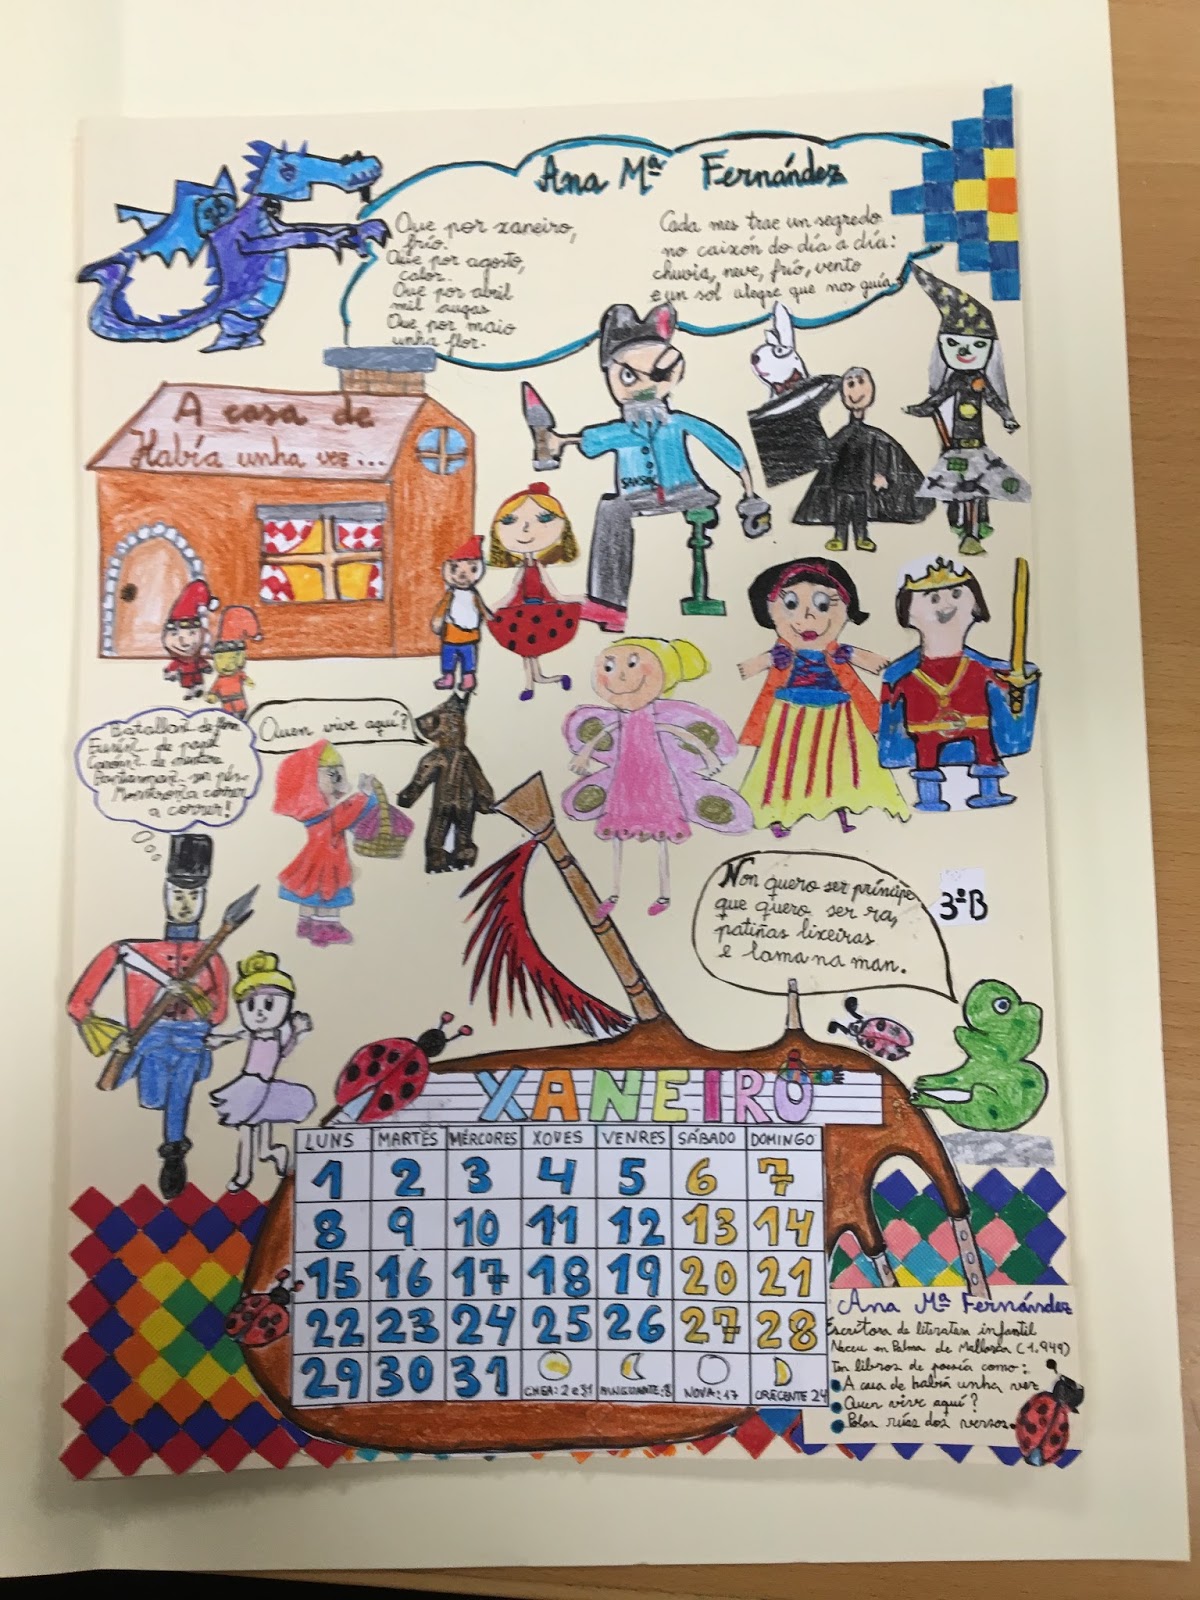 Ana Mª Fernández
Que por xaneiro,
frío.
Que por agosto,
calor.
Que por abril
mil augas
Que por maio
unha flor.
Cada mes trae un segredo
no caixón do día a día:
chuvia, neve, frío, vento
e un sol alegre que nos guía.
A casa de
Había unha vez...
SANSÓN
Quen vive aquí?
de papel
a correr!
Non quero ser príncipe
que quero ser ra,
patiñas lixeiras
e lama na man.
3ºB
XANEIRO
LUNS MARTES MÉRCORES XOVES VENRES SÁBADO DOMINGO
1 2 3 4 5 6 7
8 9 10 11 12 13 14
15 16 17 18 19 20 21
22 23 24 25 26 27 28
29 30 31
CHEA: 2 e 31 MINGUANTE: 8 NOVA: 17 CRECENTE 24
Ana Mª Fernández
Escritora de literatura infantil
Naceu en Palma de Mallorca (1.949)
Ten libros de poesía como:
A casa de había unha vez
Quen vive aquí?
Polas rúas dos versos.